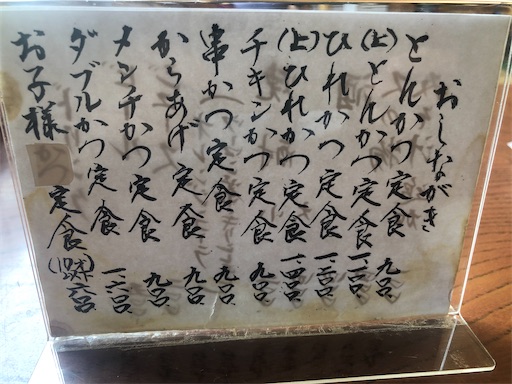 おしながき
とんかつ定食 九〇〇
(上)とんかつ定食 一、二〇〇
ひれかつ定食 一、二〇〇
(上)ひれかつ定食 一、四〇〇
チキンかつ定食 九〇〇
串かつ定食 九〇〇
からあげ定食 九〇〇
メンチかつ定食 九〇〇
ダブルかつ定食 一、六〇〇
お子様 定食 六〇〇